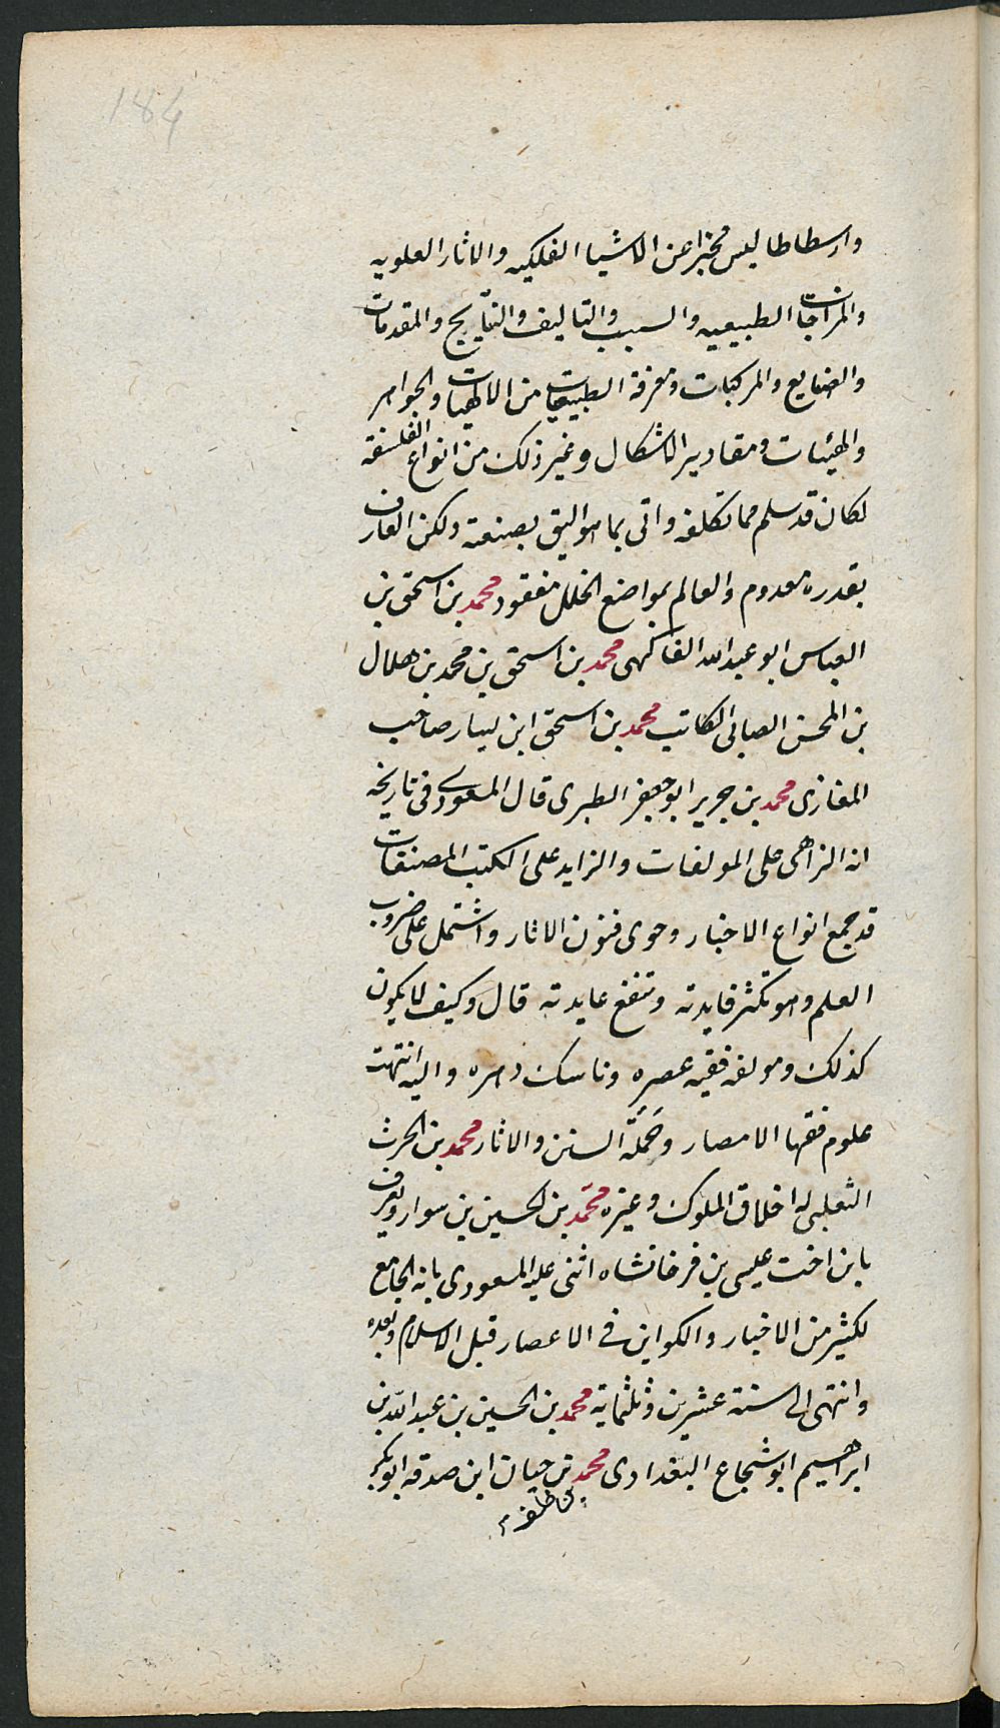 184
وارسطاطاليس مخبرا عن الاشيا الفلكيه والاثار العلويه
والمزاجات الطبيعيه والسبب والتاليف والنتايج والمقدمات
والصنايع والمركبات ومعرفة الطبيعيات من الالهيات والجواهر
والهيئات ومقادير الاشكال وغير ذلك من انواع الفلسفة
لكان قد سلم مما تكلفه واتى بما هو اليق بصنعته ولكن العارف
بقدره معدوم والعالم بمواضع الخلل مفقود محمد بن اسحق بن
العباس ابو عبدالله الفاكهى محمد بن اسحق بن محمد بن هلال
بن المحسن الصابى الكاتب محمد بن اسحق ابن يسار صاحب
المغازى محمد بن جرير ابو جعفر الطبرى قال المسعودى فى تاريخه
انه الزاهى على المولفات والزايد على الكتب المصنفات
قد جمع انواع الاخبار وحوى فنون الاثار واشتمل على ضروب
العلم وهو تكثر فايدته وتنفع عايدته قال وكيف لا يكون
كذلك ومولفه فقيه عصره وناسك دهره واليه انتهت
علوم فقها الامصار وحَمَلَة السنن والاثار محمد بن الحرث
الثعلبى له اخلاق الملوك وغيره محمد بن الحسين بن سوار ويعرف
بابن اخت عيسى بن فرخانشاه اثنى عليه المسعودى بانه الجامع
لكثير من الاخبار والكواين فى الاعصار قبل الاسلام وبعده
وانتهى الى سنة عشرين وثلثماية محمد بن الحسين بن عبدالله بن
ابراهيم ابو شجاع البغدادى محمد بن حيان ابن صدقه ابو بكر
بن خلف